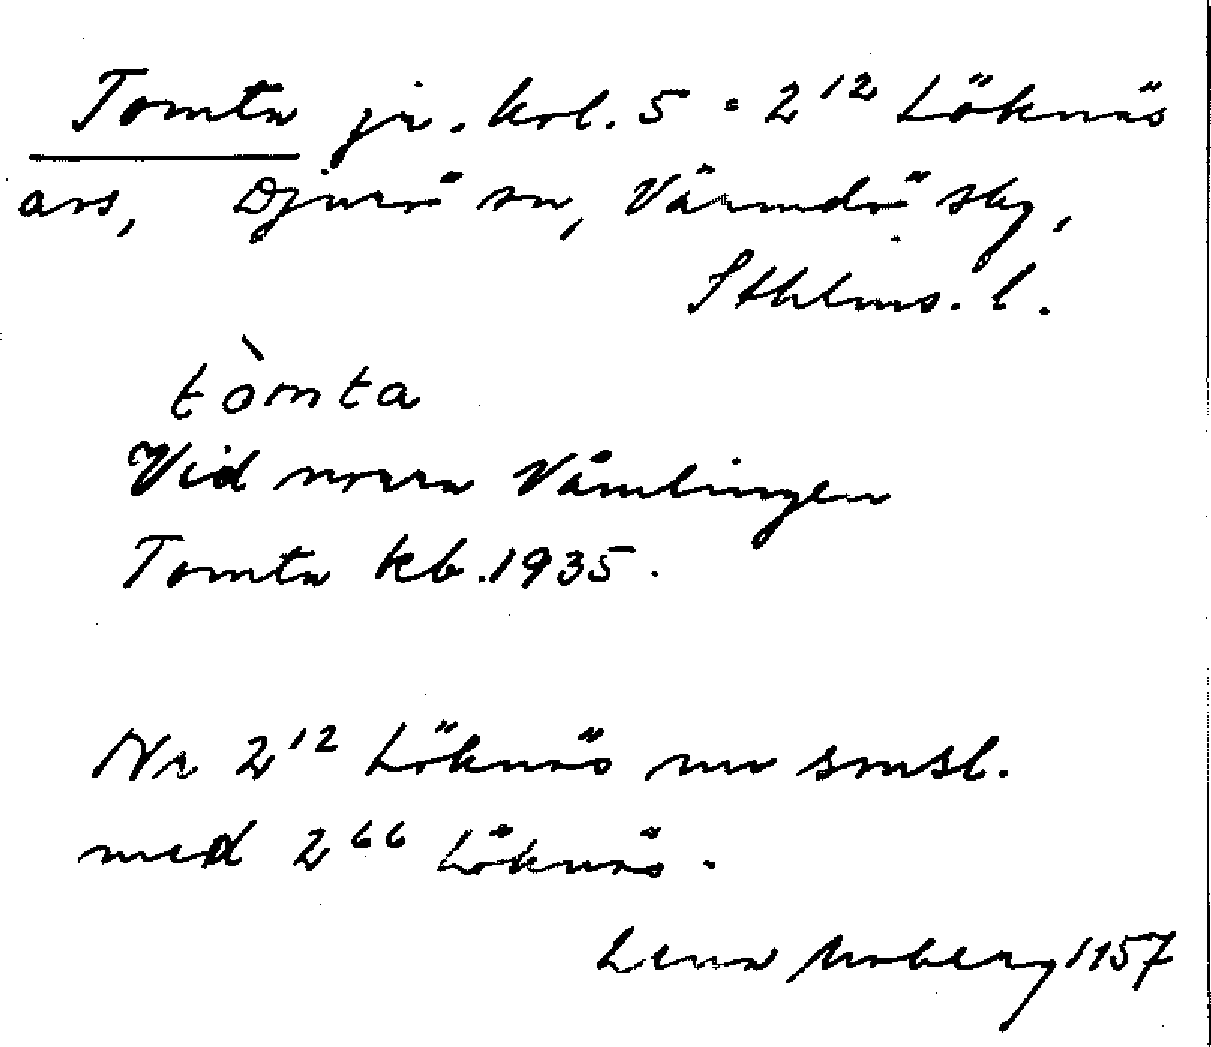 Tomta jr. kol. 5 = 2¹² Löknäs
avs, Djurö sn, Värmdö sky,
Sthlms. l.
tòmta
Vid norra Vämlingen
Tomta kb. 1935.
Nr 2¹² Löknäs nu smsl.
med 2⁶⁶ Löknäs.
Lena Moberg 1157